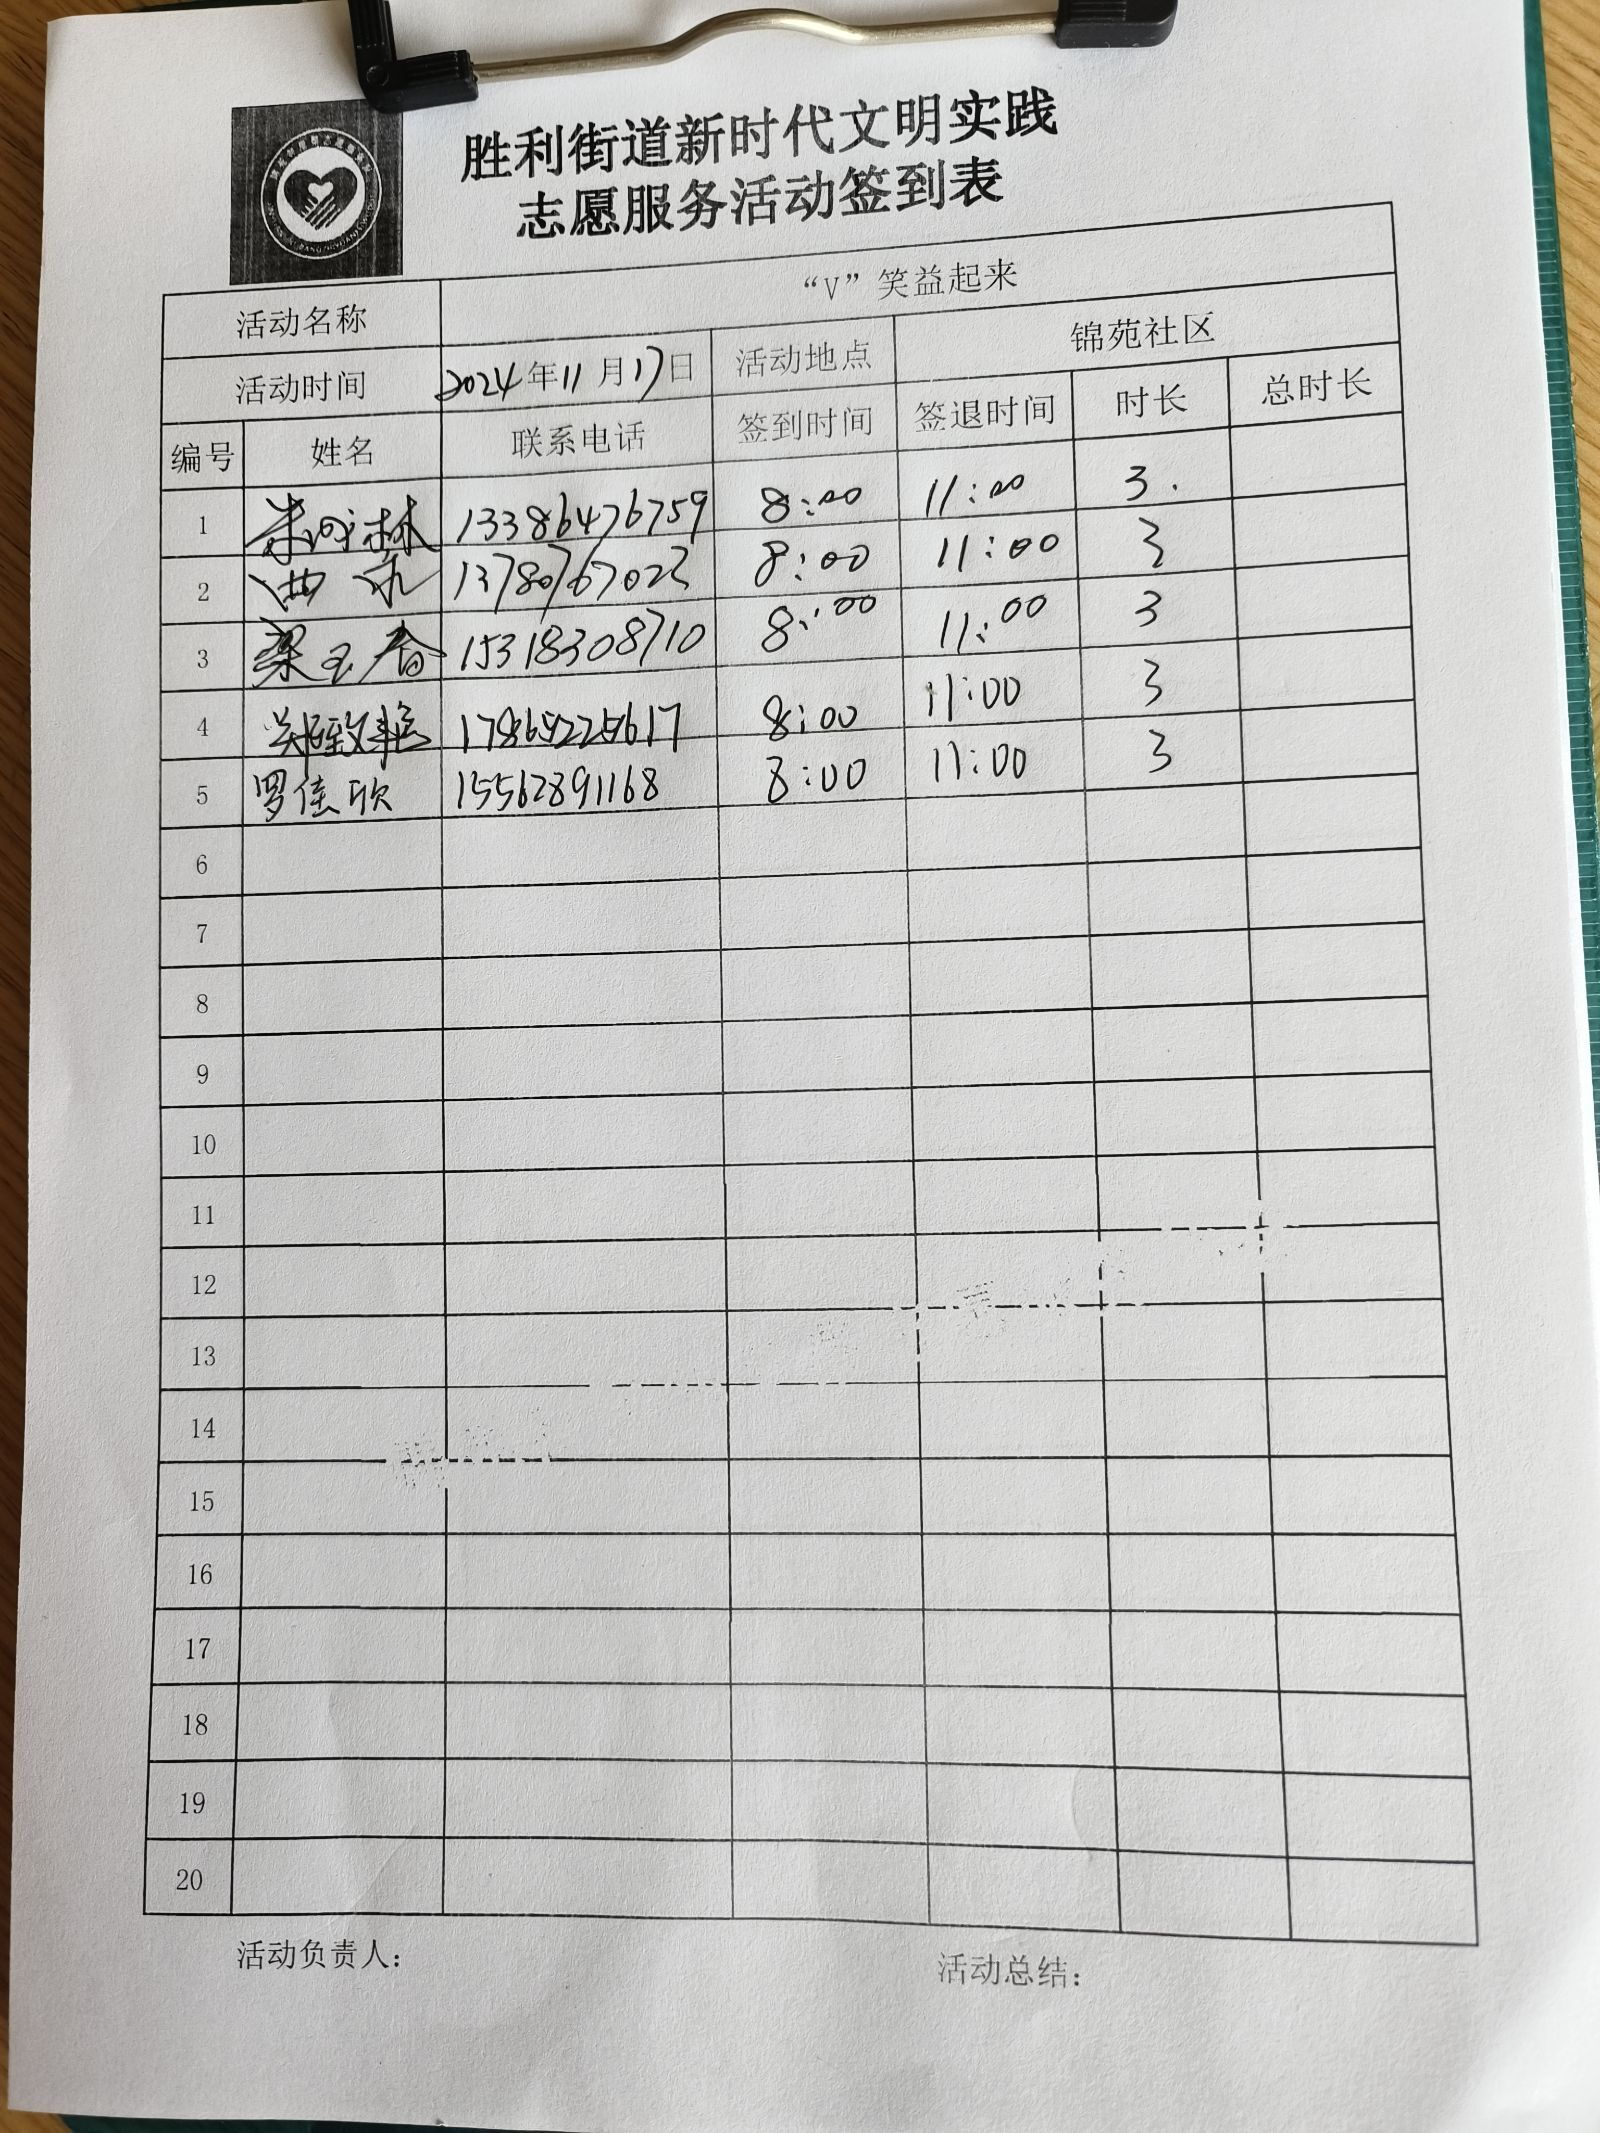 胜利街道新时代文明实践
志愿服务活动签到表
活动名称 “V”笑益起来
活动时间 2024年11月17日 活动地点 锦苑社区
编号 姓名 联系电话 签到时间 签退时间 时长 总时长
1 林 13386476759 8:00 11:00 3.
2 13780767023 8:00 11:00 3
3 梁玉香 15318308710 8:00 11:00 3
4 8:00 11:00 3
5 罗佳欣 15562891168 8:00 11:00 3
6
7
8
9
10
11
12
13
14
15
16
17
18
19
20
活动负责人: 活动总结: